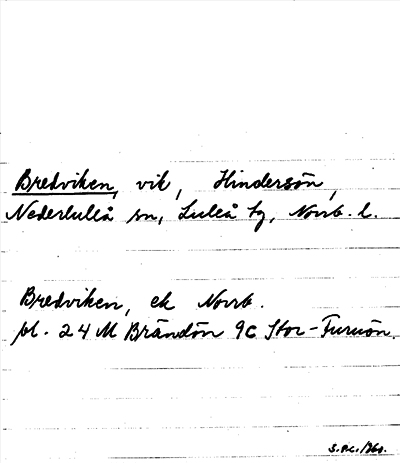 Bredviken, vik, Hindersön,
Nederluleå sn, Luleå tg, Norrb. l.
Bredviken, ek Norrb.
bl. 24 M Brändön 9c Stor-Furuön.
S.P.C. 1960.